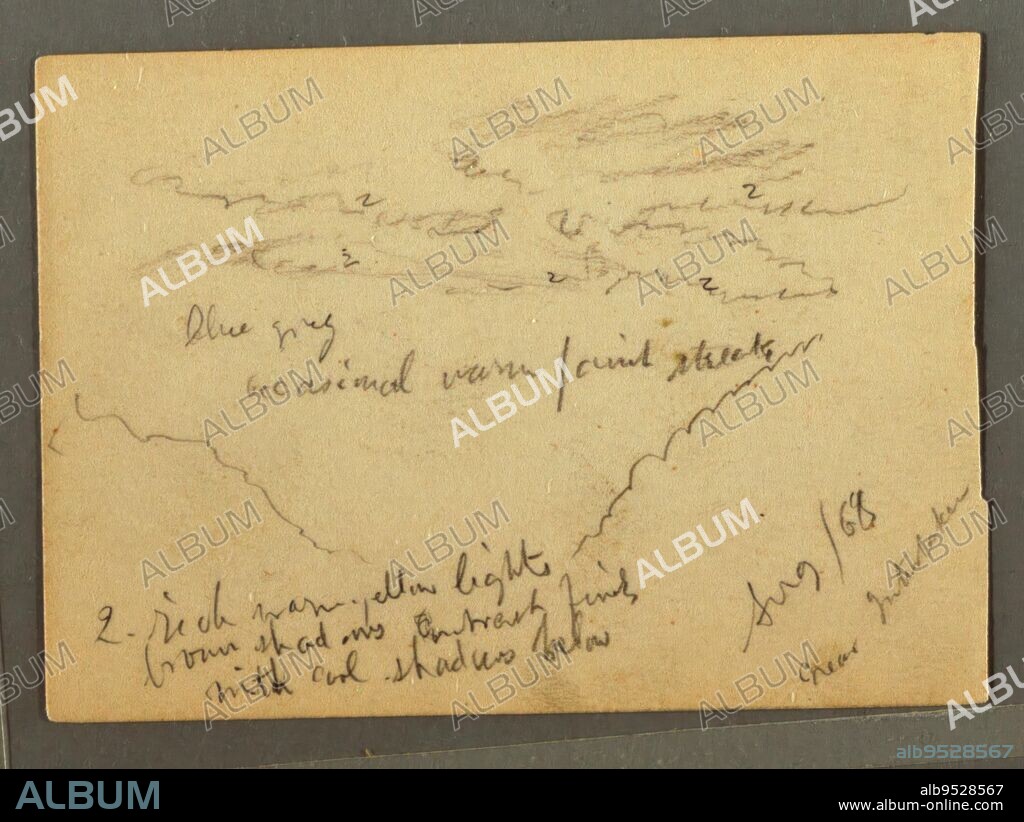 2 2
2 2 2
Blue grey
occasional warm faint streaks
2. rich warm yellow lights
brown shadows contrast finely
with cool shadows below
Aug/68
near Interlaken
ALBUM
alb9528567
ALBUM
alb9528567
www.album-online.com